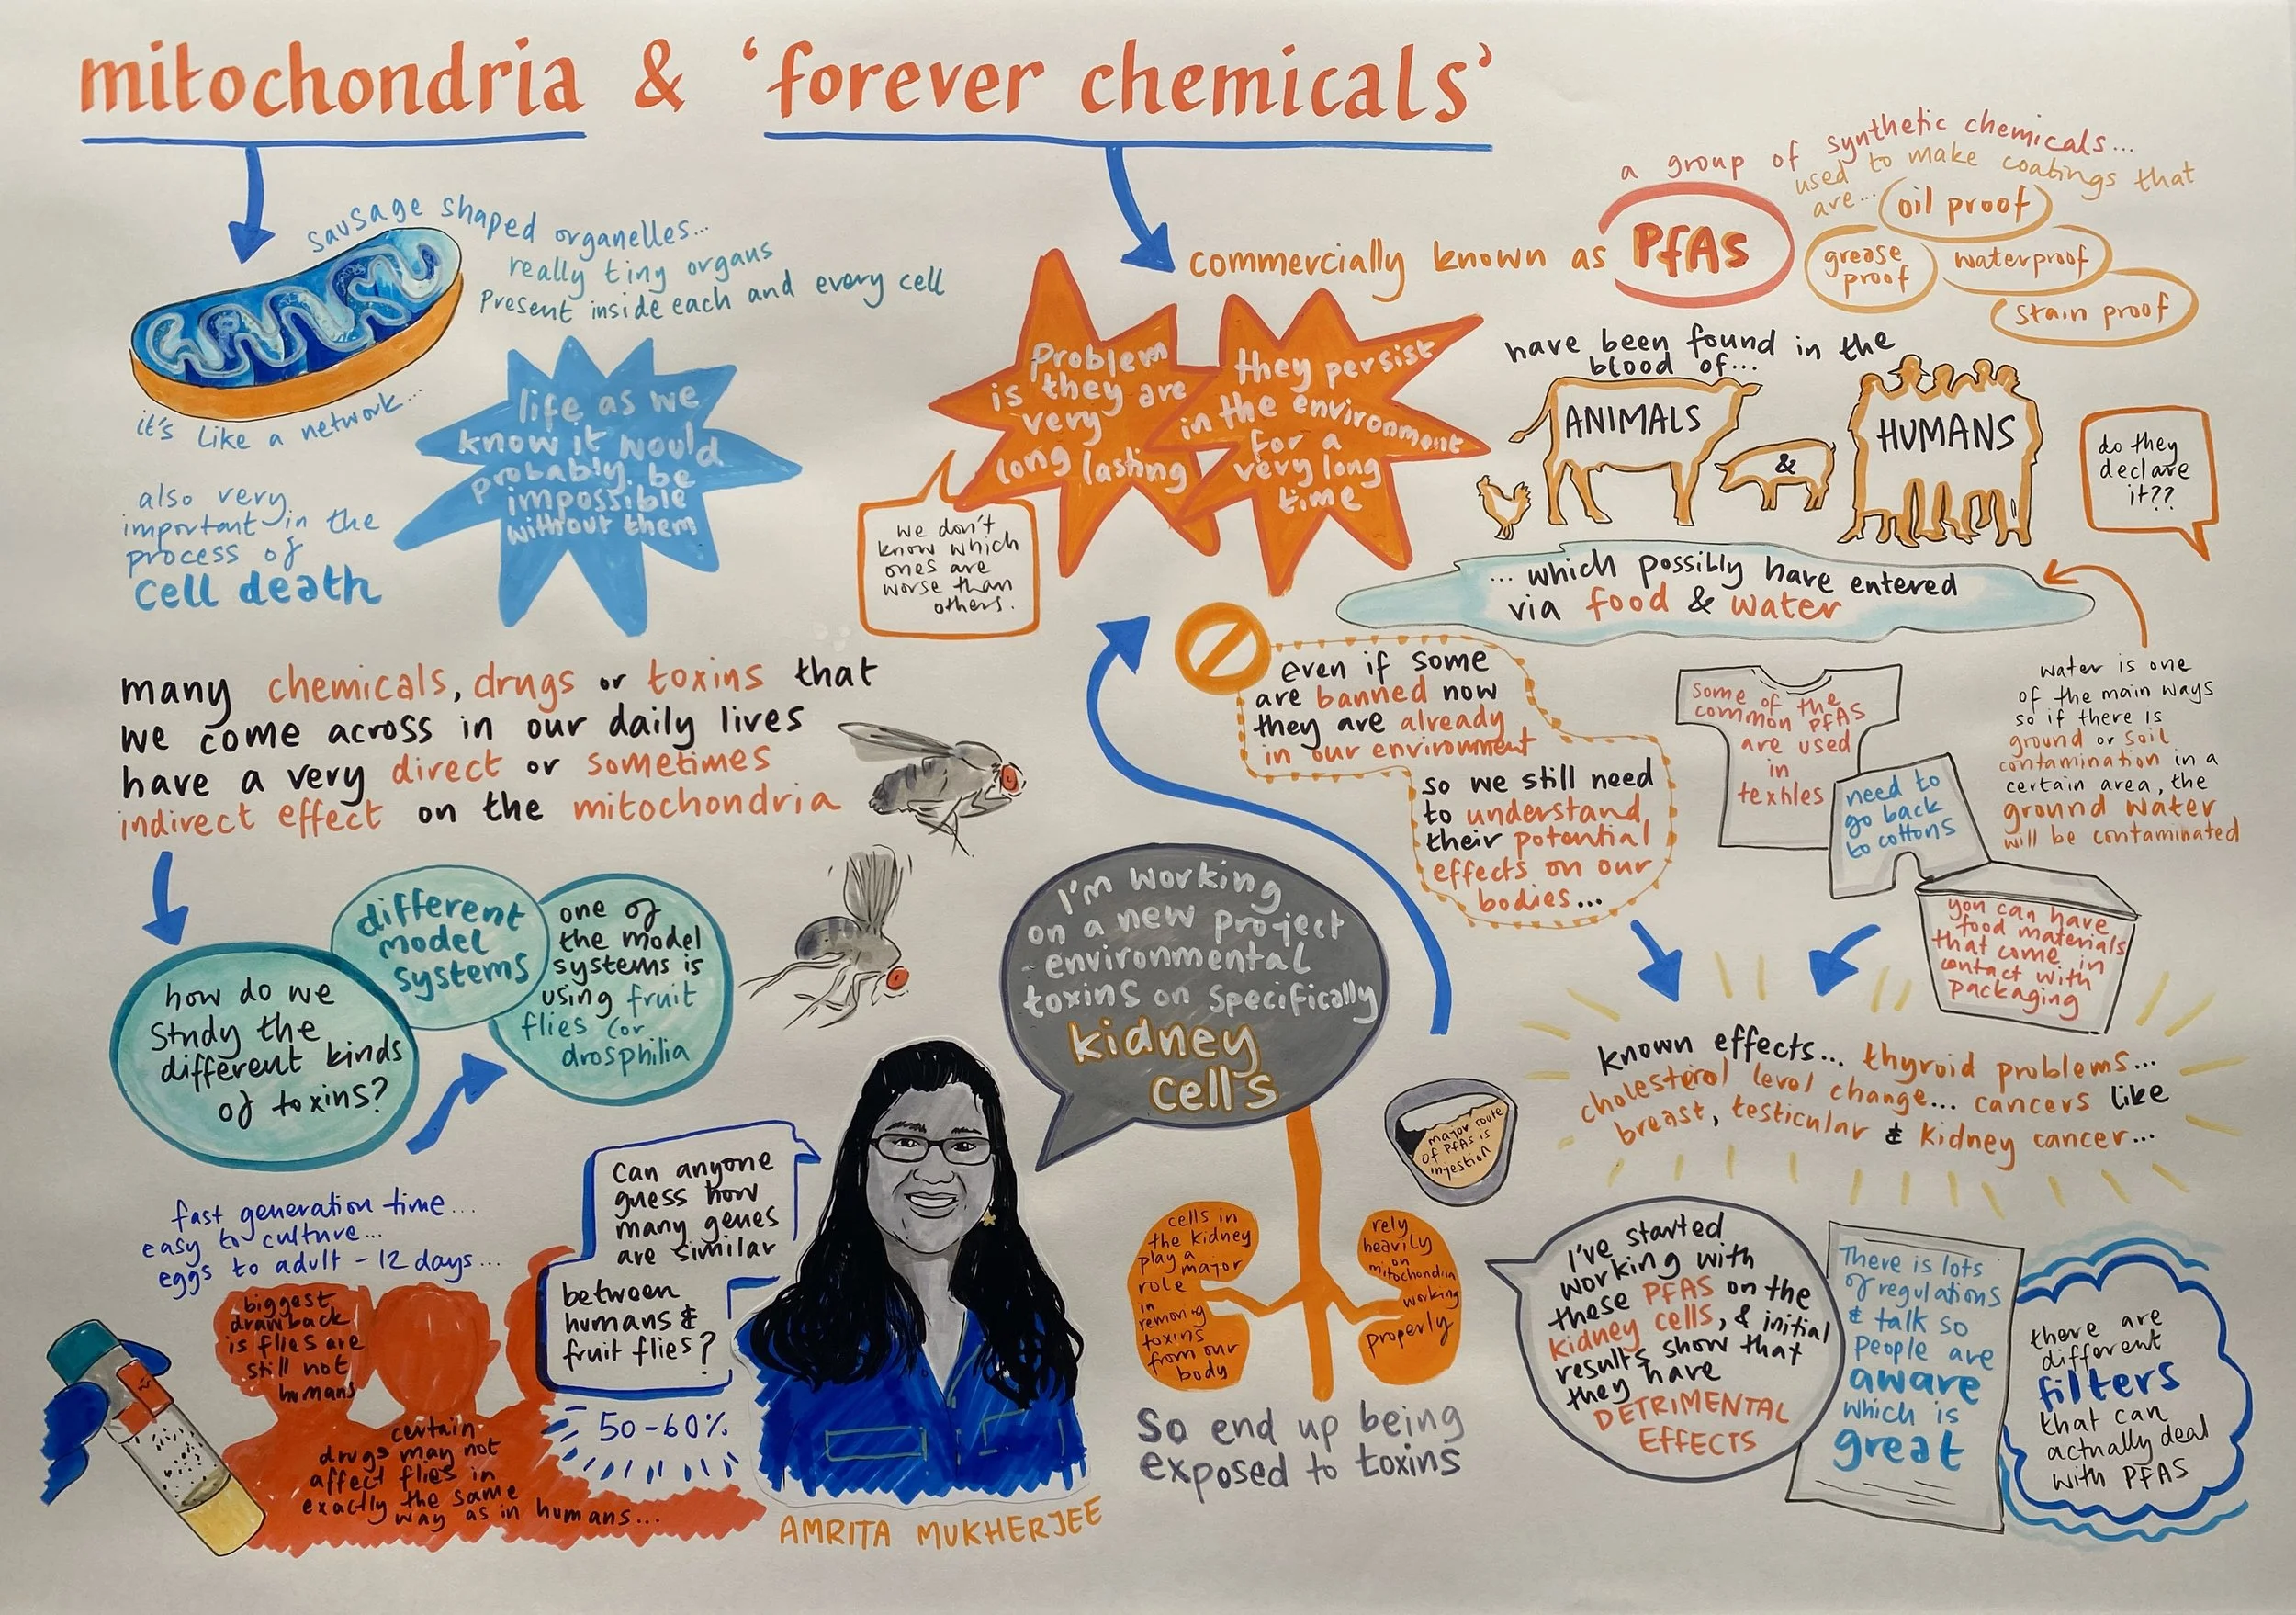 mitochondria & 'forever chemicals'
sausage shaped organelles...
really tiny organs
present inside each and every cell
it's like a network...
also very
important in the
process of
cell death
life as we
know it would
probably be
impossible
without them
many chemicals, drugs or toxins that
we come across in our daily lives
have a very direct or sometimes
indirect effect on the mitochondria
how do we
study the
different kinds
of toxins?
different
model
systems
one of
the model
systems is
using fruit
flies (or
drosphilia
fast generation time...
easy to culture...
eggs to adult - 12 days...
biggest
drawback
is flies are
still not
humans
certain
drugs may not
affect flies in
exactly the same
way as in humans...
Can anyone
guess how
many genes
are similar
between
humans &
fruit flies?
50-60%
AMRITA MUKHERJEE
I'm working
on a new project
- environmental
toxins on specifically
kidney
cells
cells in
the kidney
play a
major
role
in
removing
toxins
from our
body
rely
heavily
on
mitochondria
working
properly
So end up being
exposed to toxins
commercially known as PfAs
a group of synthetic chemicals...
used to make coatings that
are...
oil proof
grease
proof
waterproof
stain proof
Problem
is they are
very
long lasting
they persist
in the environment
for a
very long
time
we don't
know which
ones are
worse than
others.
have been found in the
blood of...
ANIMALS
&
HUMANS
do they
declare
it??
... which possibly have entered
via food & water
water is one
of the main ways
so if there is
ground or soil
contamination in a
certain area, the
ground water
will be contaminated
even if some
are banned now
they are already
in our environment
so we still need
to understand
their potential
effects on our
bodies...
Some of the
common PfAS
are used
in
textiles
need to
go back
to cottons
you can have
food materials
that come in
contact with
packaging
known effects... thyroid problems...
cholesterol level change... cancers like
breast, testicular & kidney cancer...
major route
of PfAs is
ingestion
I've started
working with
these PFAS on the
kidney cells, & initial
results show that
they have
DETRIMENTAL
EFFECTS
There is lots
of regulations
& talk so
people are
aware
which is
great
there are
different
filters
that can
actually deal
with PFAS